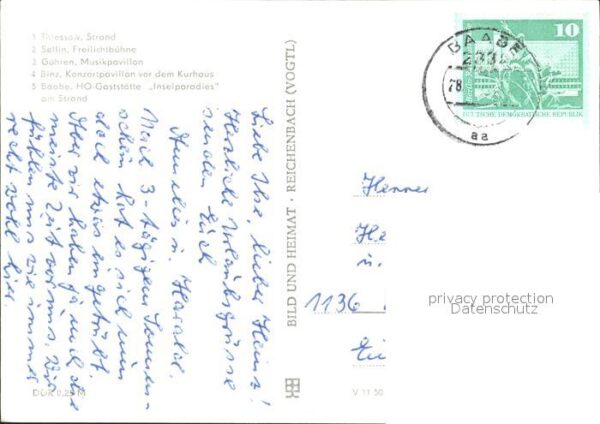 1 Thiessow, Strand
2 Sellin, Freilichtbühne
3 Göhren, Musikpavillon
4 Binz, Konzertpavillon vor dem Kurhaus
5 Baabe, HO-Gaststätte „Inselparadies"
am Strand
Liebe Ilse, lieber Heinz!
Herzliche Urlaubsgrüsse
senden Euch
Annelies u. Harald.
Nach 3-tägigem Sonnen-
schein hat es sich nun
doch etwas eingetrübt.
Aber wir haben ja noch die
meiste Zeit vor uns. Wir
fühlen uns wie immer
recht wohl hier.
DDR 0,25 M
BILD UND HEIMAT · REICHENBACH (VOGTL)
V 11 50
BAABE
28.
aa
10
DEUTSCHE DEMOKRATISCHE REPUBLIK
Herrn
He
u.
1136
privacy protection
Datenschutz